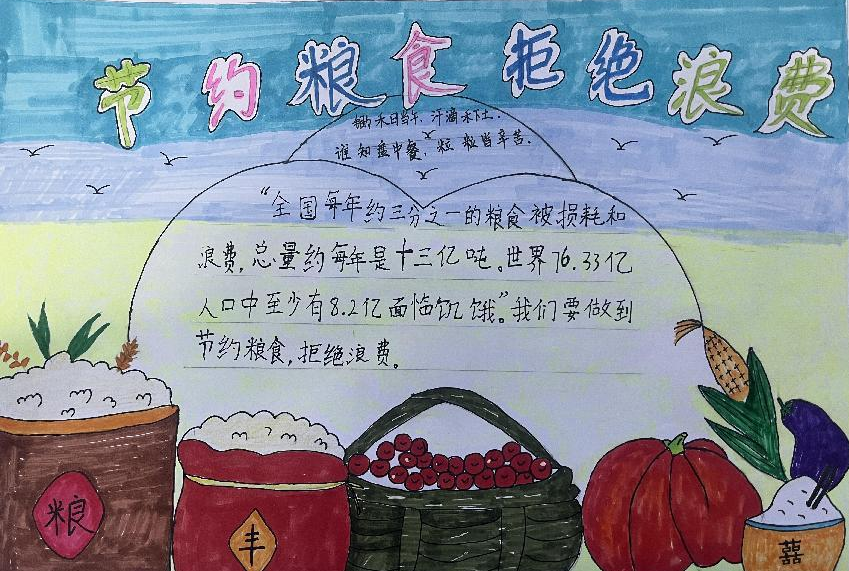 节约粮食拒绝浪费
锄禾日当午，汗滴禾下土.
谁知盘中餐，粒粒皆辛苦.
“全国每年约三分之一的粮食被损耗和
浪费，总量约每年是十三亿吨。世界76.33亿
人口中至少有8.2亿面临饥饿”。我们要做到
节约粮食，拒绝浪费。
粮
丰
囍